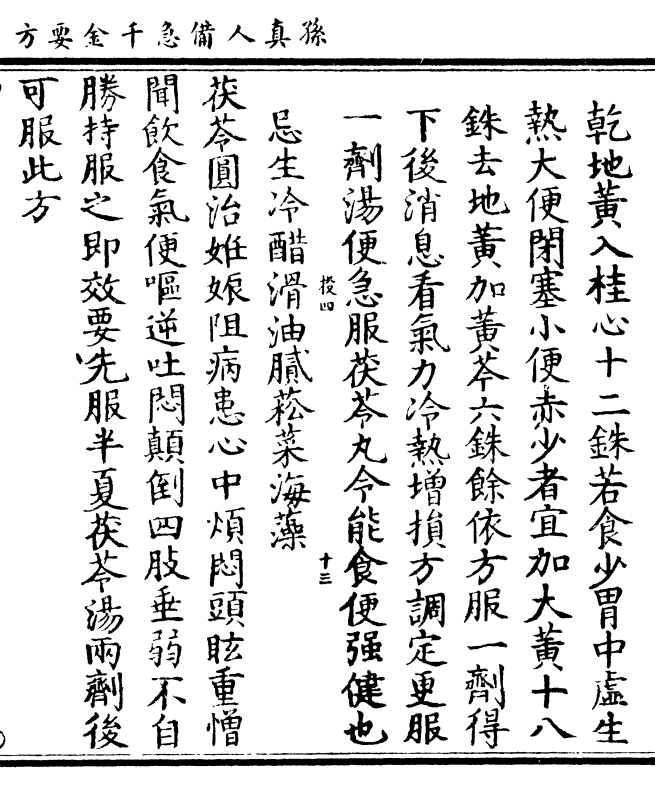 孫真人備急千金要方
乾地黃入桂心十二銖若食少胃中虛生
熱大便閉塞小便赤少者宜加大黃十八
銖去地黃加黃芩六銖餘依方服一劑得
下後消息看氣力冷熱增損方調定更服
一劑湯便急服茯苓丸令能食便强健也
忌生冷醋滑油膩菘菜海藻
十三
茯苓圓治妊娠阻病患心中煩悶頭眩重憎
聞飲食氣便嘔逆吐悶顛倒四肢垂弱不自
勝持服之即效要先服半夏茯苓湯兩劑後
可服此方